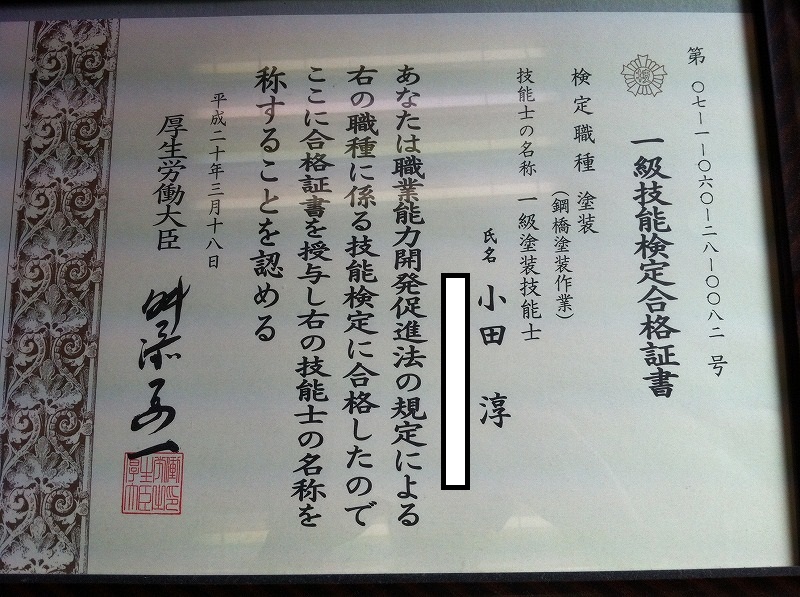 第〇七－一－〇六〇－二八－〇〇八二号
一級技能検定合格証書
検定職種 塗装
（鋼橋塗装作業）
技能士の名称 一級塗装技能士
氏名 小田 淳
あなたは職業能力開発促進法の規定による
右の職種に係る技能検定に合格したので
ここに合格証書を授与し右の技能士の名称を
称することを認める
平成二十年三月十八日
厚生労働大臣 舛添要一